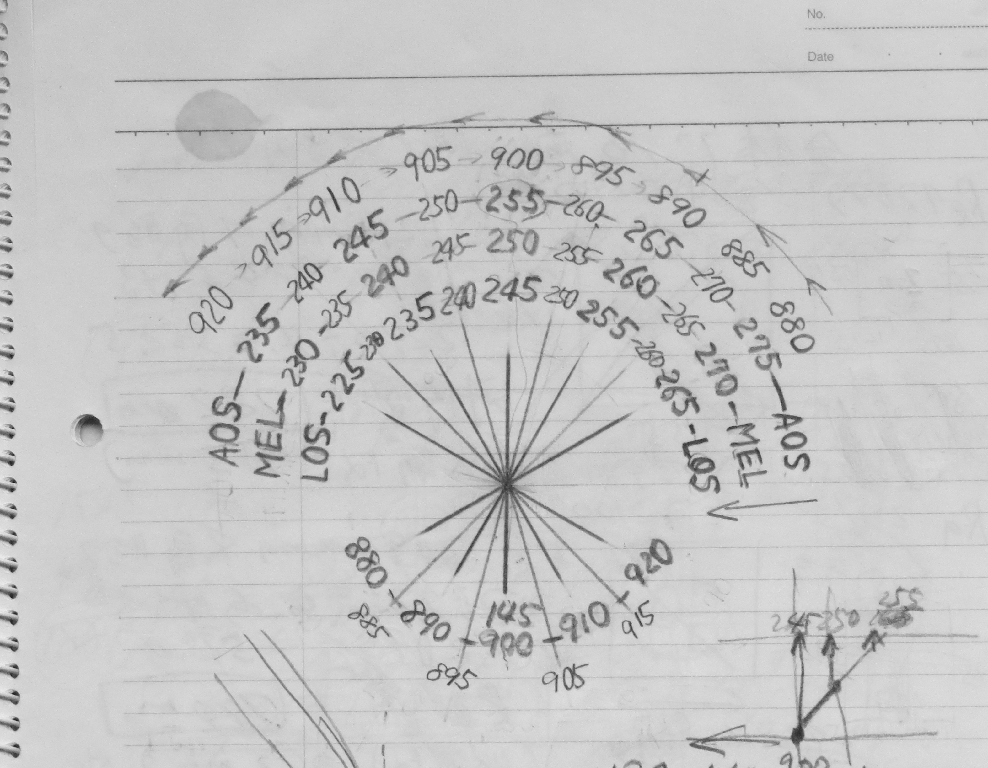 No.
Date
920 915 910 905 900 895 890 885 880
AOS 235 240 245 250 255 260 265 270 275 AOS
MEL 230 235 240 245 250 255 260 265 270 MEL
LOS 225 230 235 240 245 250 255 260 265 LOS
880 885 890 895 145 900 905 910 915 920
245 250 255
900